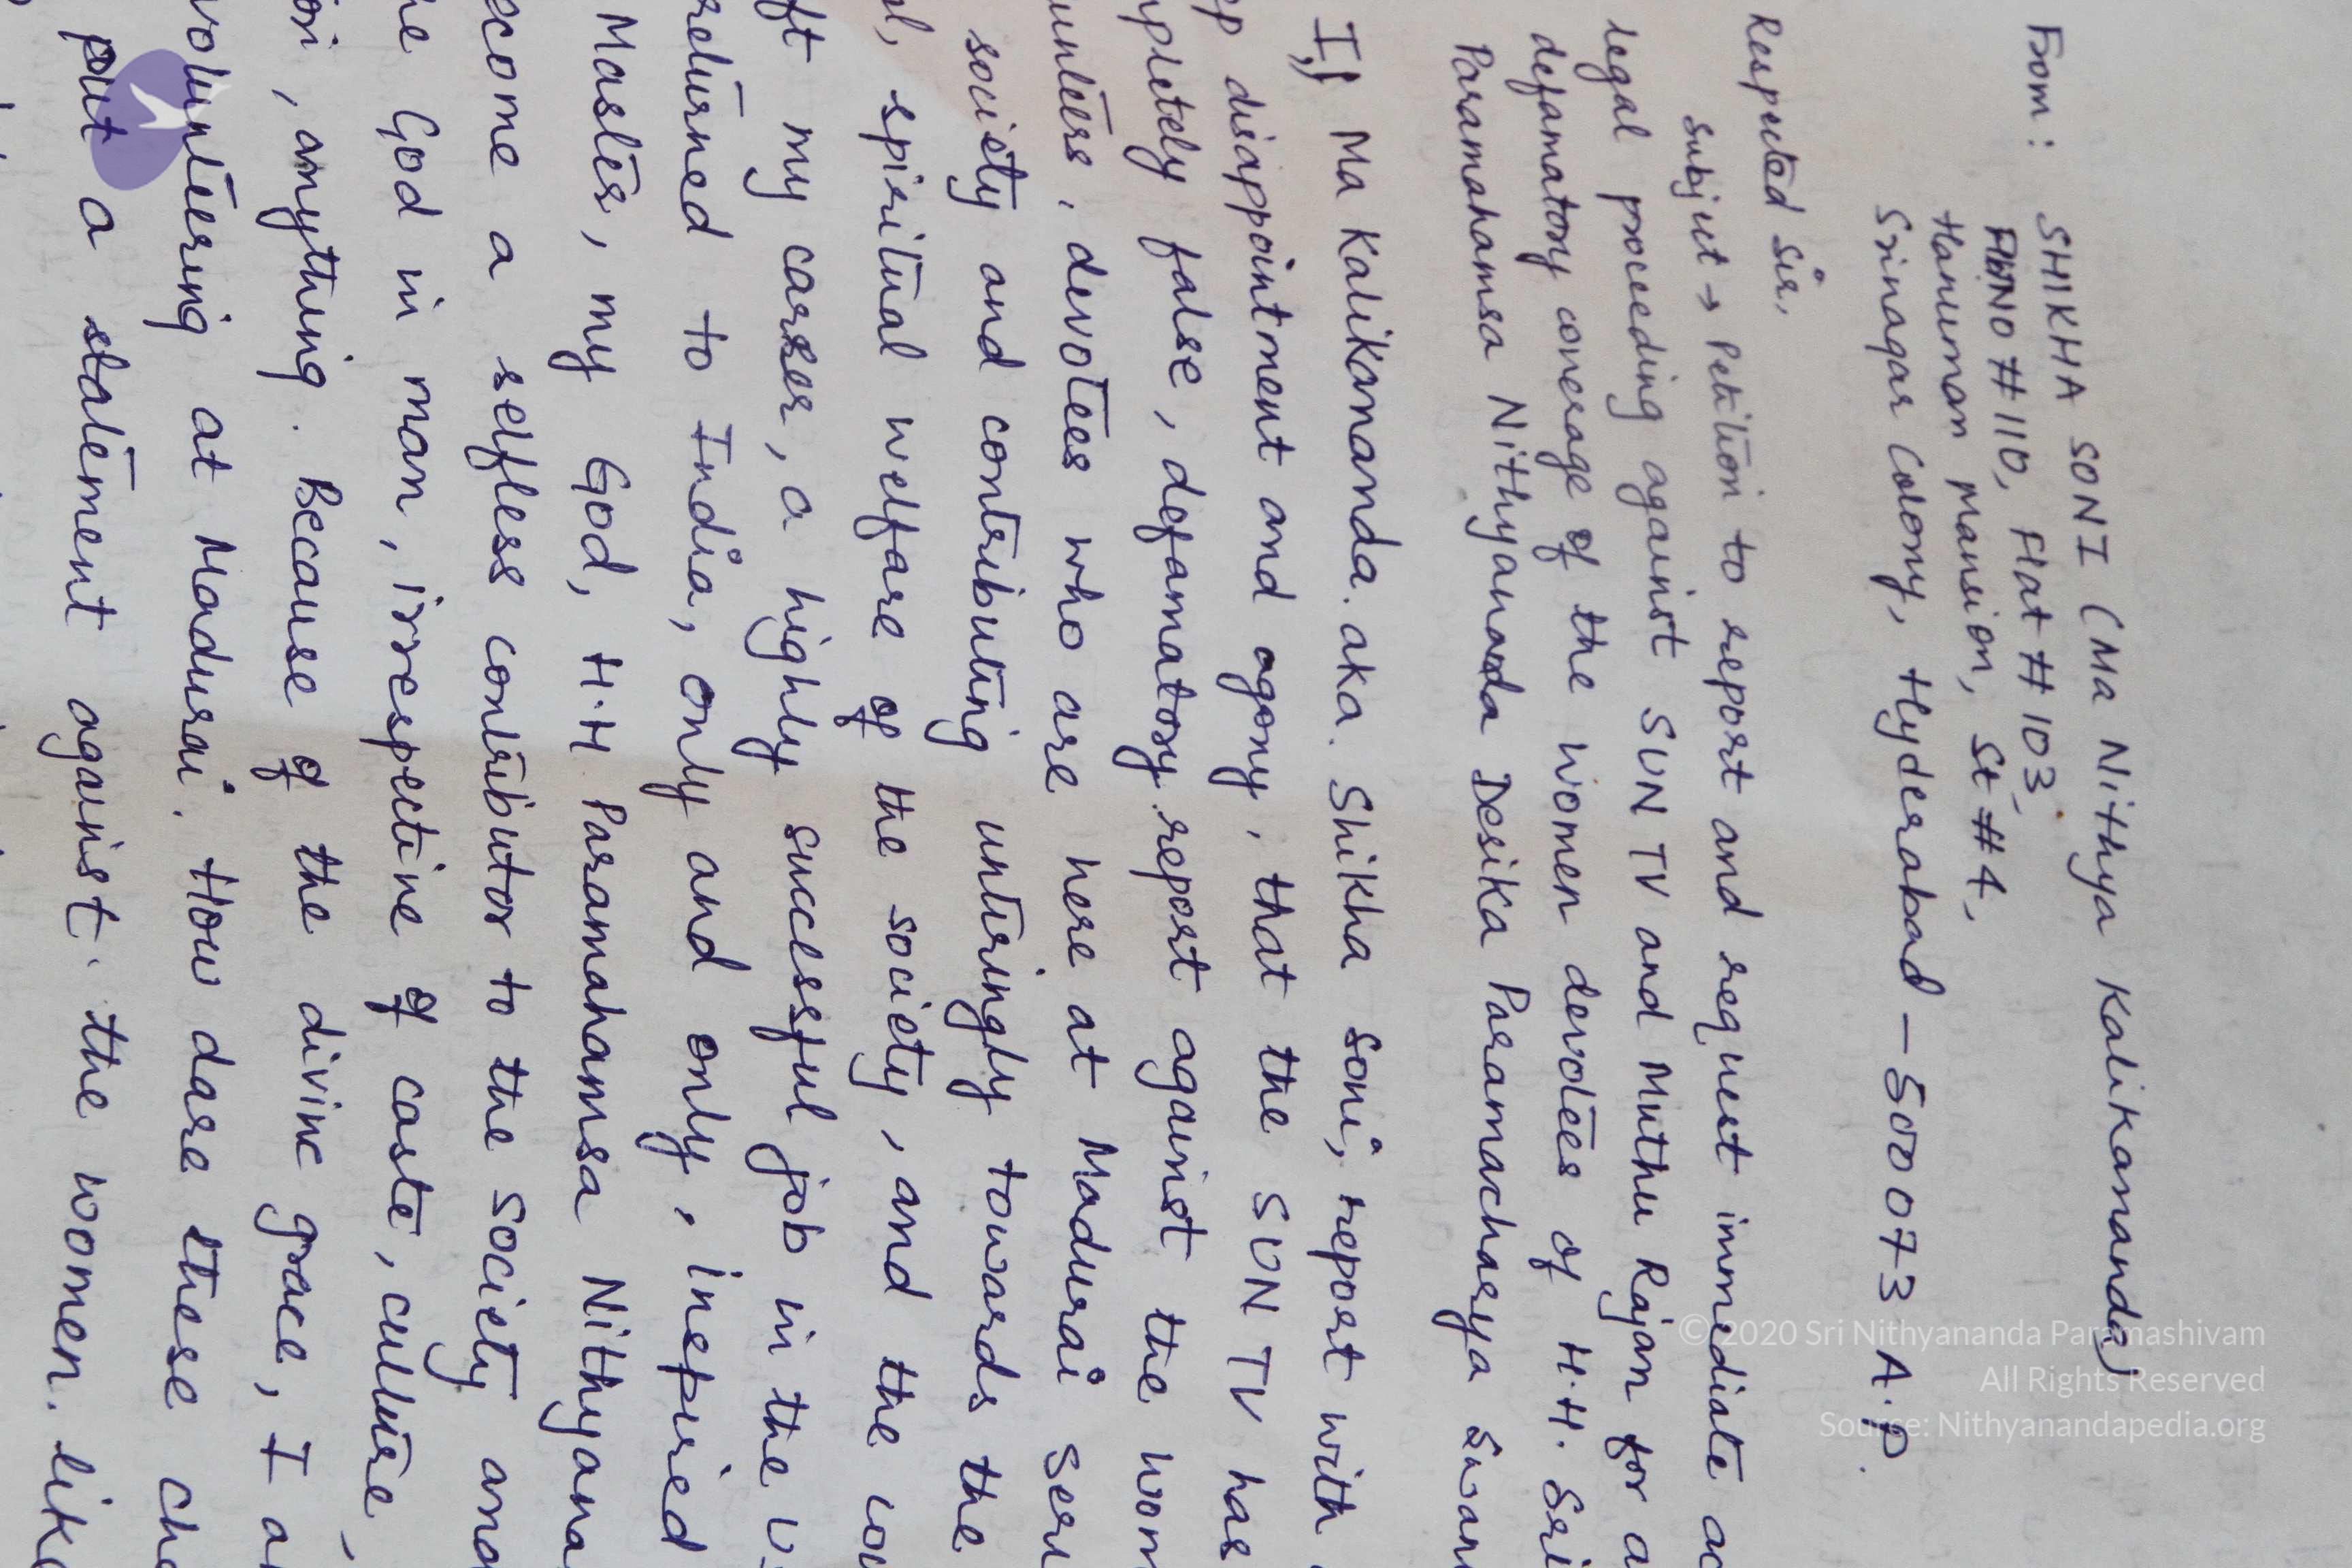 From: SHIKHA SONI (Ma Nithya Kalikananda)
NO # 110, Flat # 103,
Hanuman Mansion, St # 4,
Srinagar Colony, Hyderabad - 500073 A.P.
Respected Sir,
Subject → Petition to report and request immediate
legal proceeding against SUN TV and Muthu Rajan for
defamatory coverage of the women devotees of H.H. Sri
Paramahamsa Nithyananda Desika Paramacharya
I, Ma Kalikananda. aka. Shikha Soni, report with
disappointment and agony, that the SUN TV has
false, defamatory report against the
devotees who are here at Madurai
society and contributing untiringly towards the
spiritual welfare of the society, and the
my career, a highly successful job in the
returned to India, only and only, inspired
Master, my God, H.H Paramahamsa Nithyana
a selfless contributor to the society and
God in man, irrespective of caste, culture,
, anything. Because of the divine grace, I
volunteering at Madurai. How dare these
put a statement against. the women. like
© 2020 Sri Nithyananda Paramashivam
All Rights Reserved
Source: Nithyanandapedia.org